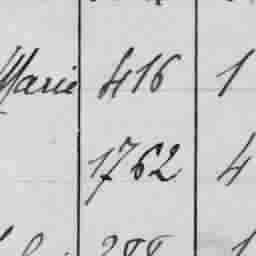 Marie 416 1
1762 4